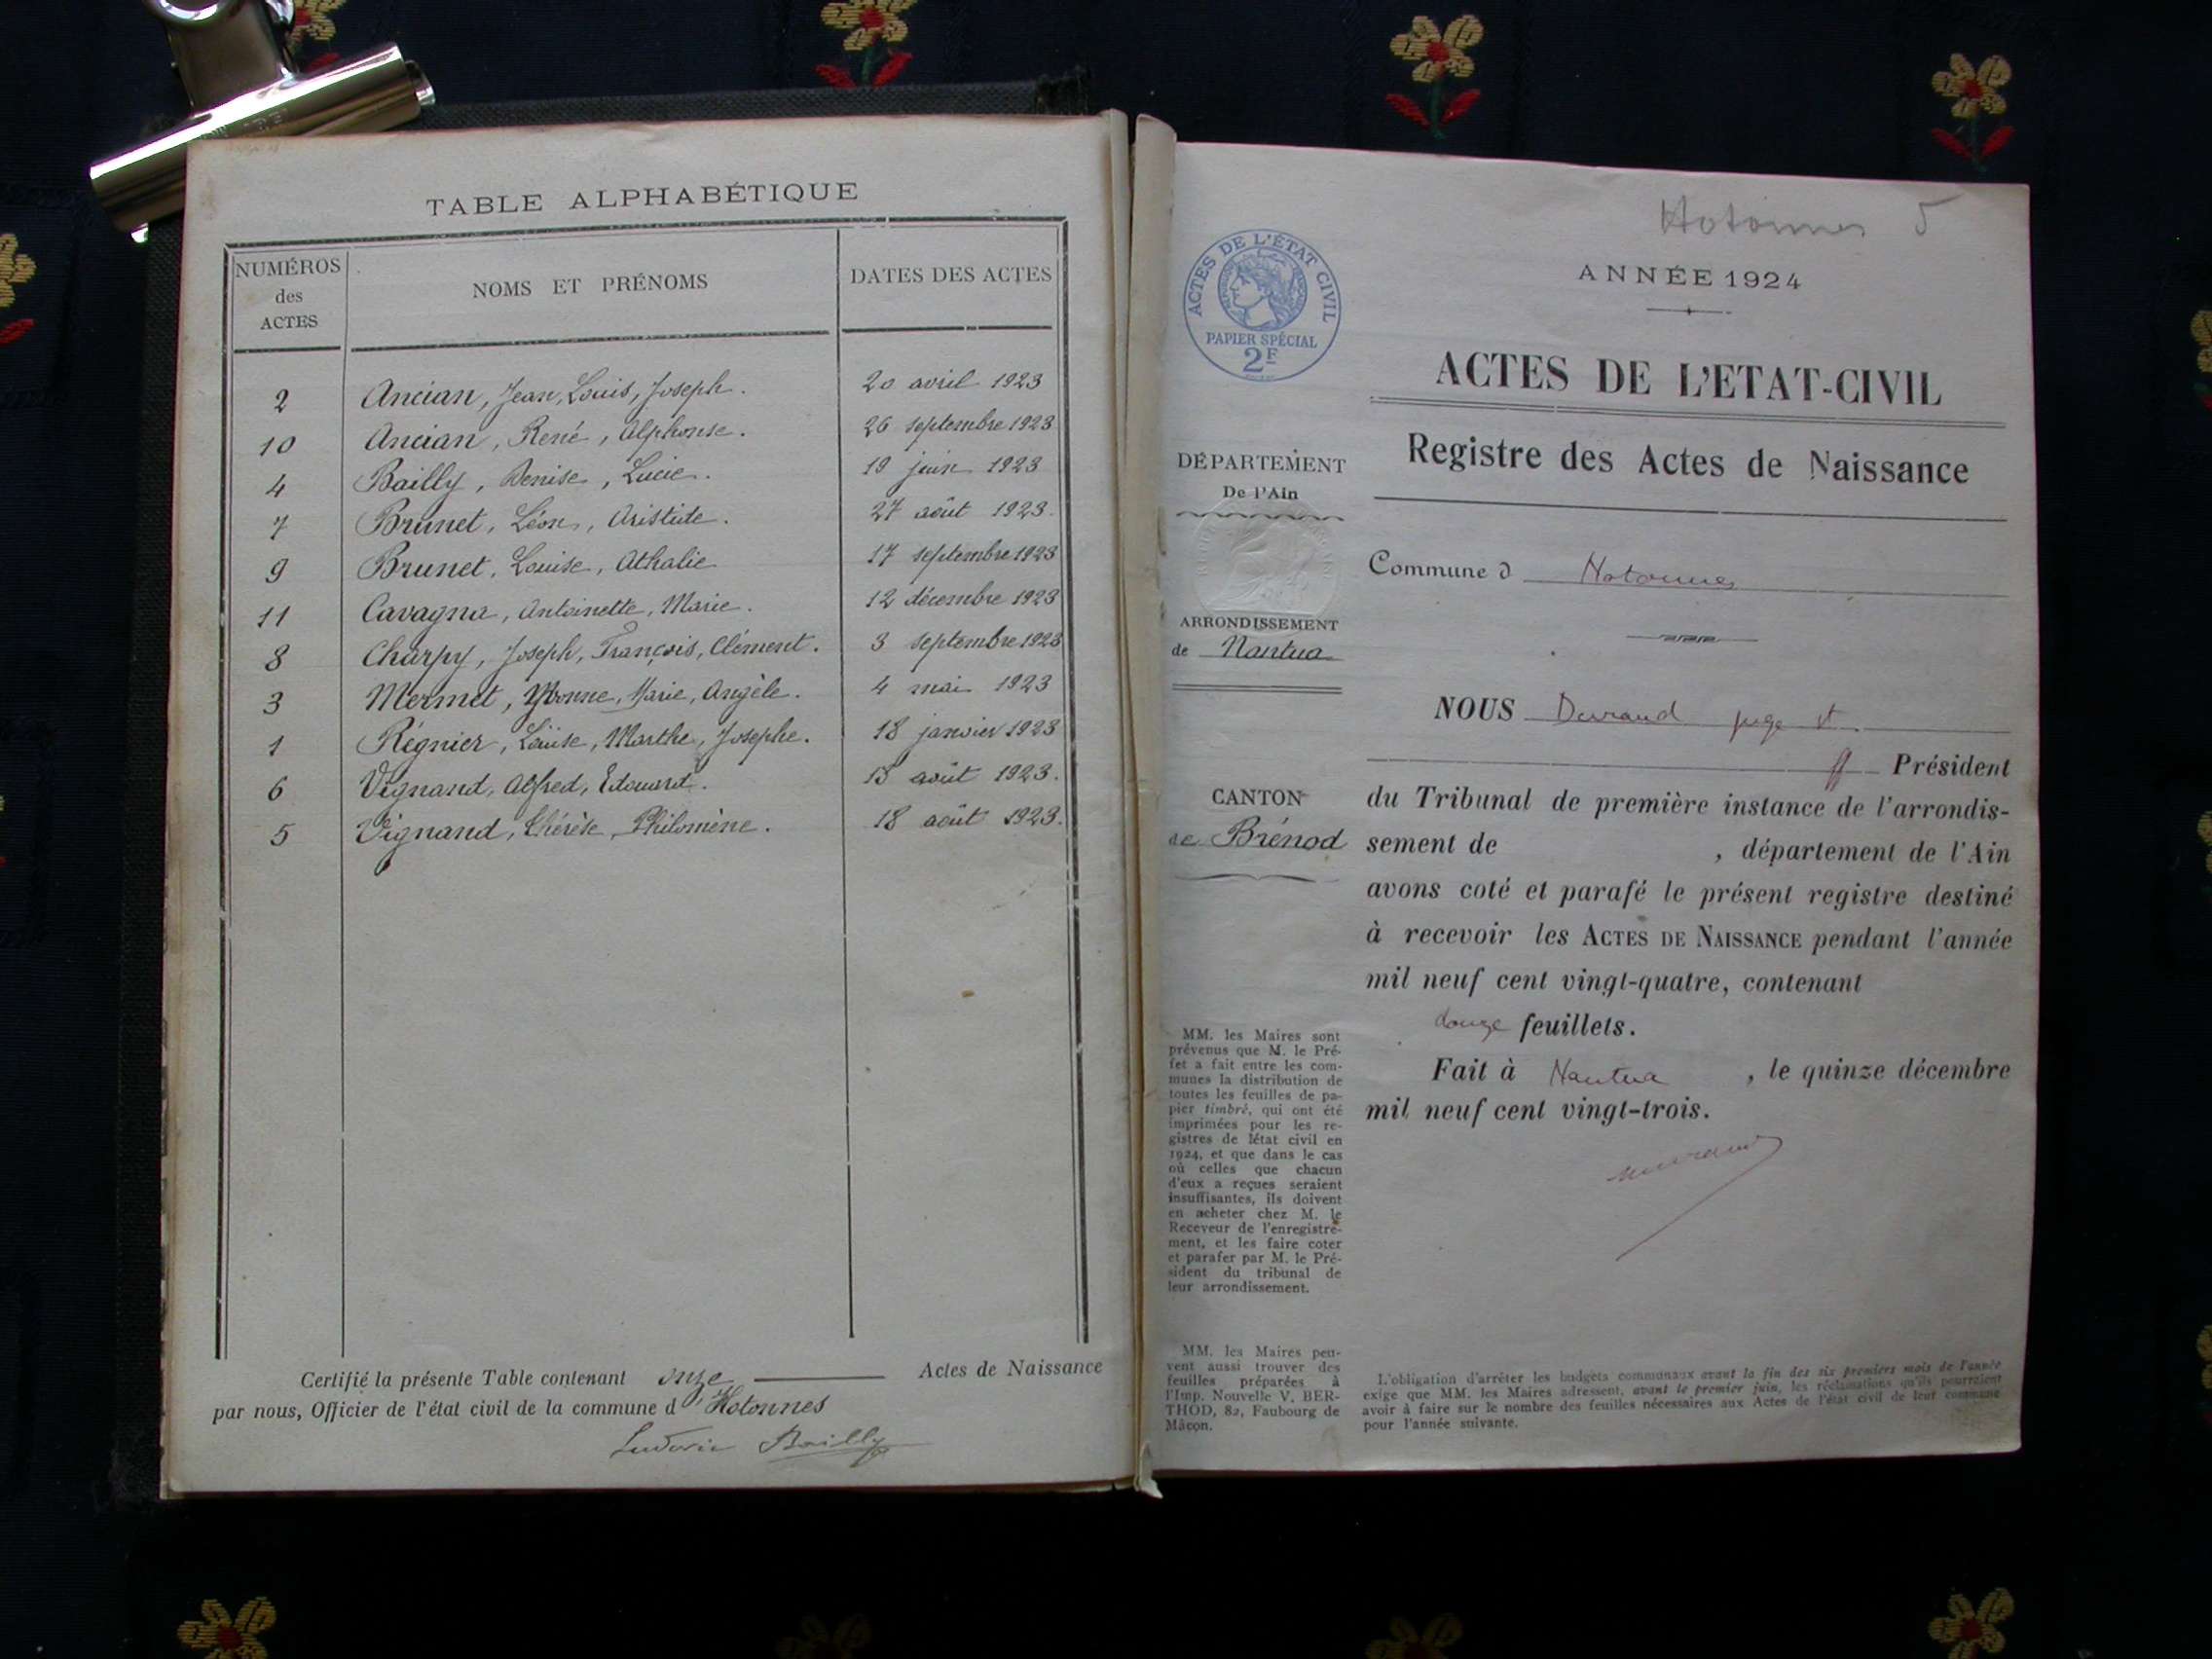 TABLE ALPHABÉTIQUE
NUMÉROS des ACTES NOMS ET PRÉNOMS DATES DES ACTES
2 Ancian, Jean, Louis, Joseph. 20 avril 1923
10 Ancian, René, Alphonse. 26 septembre 1923
4 Bailly, Denise, Lucie. 19 juin 1923
7 Brunet, Léon, Aristide. 27 août 1923.
9 Brunet, Louise, Athalie 17 septembre 1923
11 Cavagna, Antoinette, Marie. 12 décembre 1923
8 Charpy, Joseph, François, Clément. 3 septembre 1923
3 Mermet, Yvonne, Marie, Angèle. 4 mai 1923
1 Régnier, Louise, Marthe, Josephe. 18 janvier 1923
6 Vignand, Alfred, Edouard. août 1923.
5 Vignand, Thérèse, Philomène. 18 août 1923.
Certifié la présente Table contenant onze Actes de Naissance
par nous, Officier de l'état civil de la commune d'Hotonnes
Ludovic Bailly
Hotonnes 5
ACTES DE L'ÉTAT CIVIL
PAPIER SPÉCIAL
2F
ANNÉE 1924
ACTES DE L'ETAT-CIVIL
Registre des Actes de Naissance
DÉPARTEMENT
De l'Ain
ARRONDISSEMENT
de Nantua
CANTON
de Brénod
MM. les Maires sont
prévenus que M. le Pré-
fet a fait entre les com-
munes la distribution de
toutes les feuilles de pa-
pier timbré, qui ont été
imprimées pour les re-
gistres de létat civil en
1924, et que dans le cas
où celles que chacun
d'eux a reçues seraient
insuffisantes, ils doivent
en acheter chez M. le
Receveur de l'enregistre-
ment, et les faire coter
et parafer par M. le Pré-
sident du tribunal de
leur arrondissement.
MM. les Maires peu-
vent aussi trouver des
feuilles préparées à
l'Imp. Nouvelle V. BER-
THOD, 82, Faubourg de
Mâcon.
Commune d Hotonnes
NOUS Durand juge st
ff Président
du Tribunal de première instance de l'arrondis-
sement de , département de l'Ain
avons coté et parafé le présent registre destiné
à recevoir les ACTES DE NAISSANCE pendant l'année
mil neuf cent vingt-quatre, contenant
douze feuillets.
Fait à Nantua , le quinze décembre
mil neuf cent vingt-trois.
L'obligation d'arrêter les budgets communaux avant la fin des six premiers mois de l'année
exige que MM. les Maires adressent, avant le premier juin, les réclamations qu'ils pourraient
avoir à faire sur le nombre des feuilles nécessaires aux Actes de l'état civil de leur commune
pour l'année suivante.